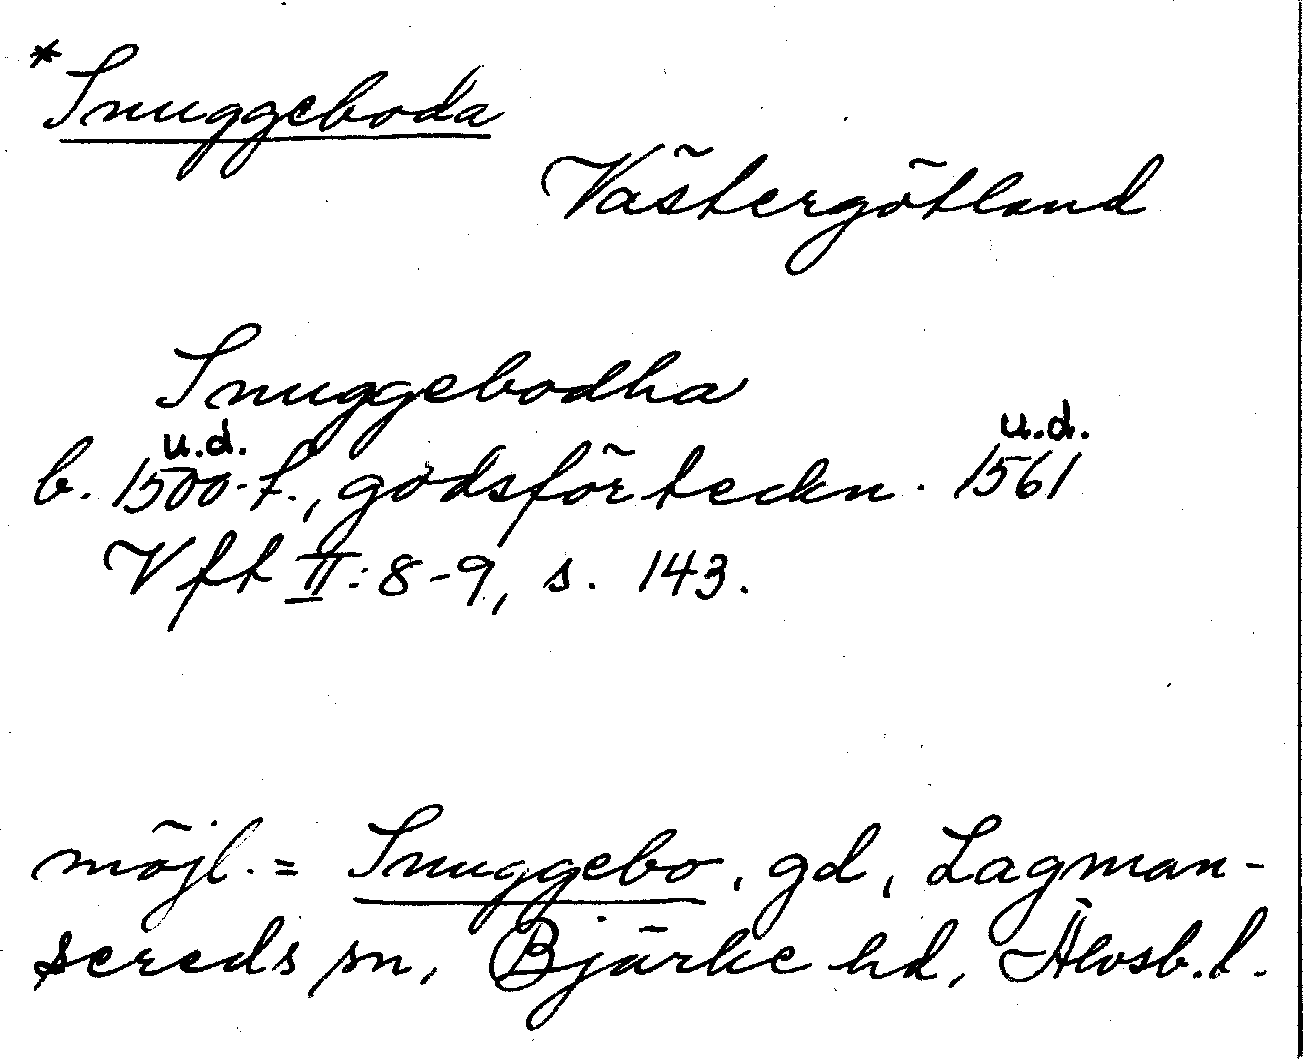 *Snuggeboda
Västergötland
Snuggebodha
u.d. u.d.
b. 1500-t., godsförteckn. 1561
Vft II:8-9, s. 143.
möjl. = Snuggebo, gd, Lagman-
sereds sn, Bjärke hd, Älvsb. l.